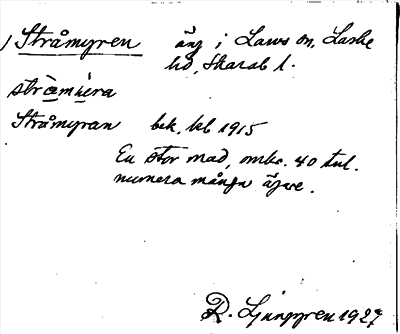 1 Stråmyren äng i Laws sn, Laske
hd, Skarab l.
stråmüra
Stråmyran bek, kb 1915
En stor mad, omkr. 40 tnl.
numera många ägare.
R. Ljunggren 1927